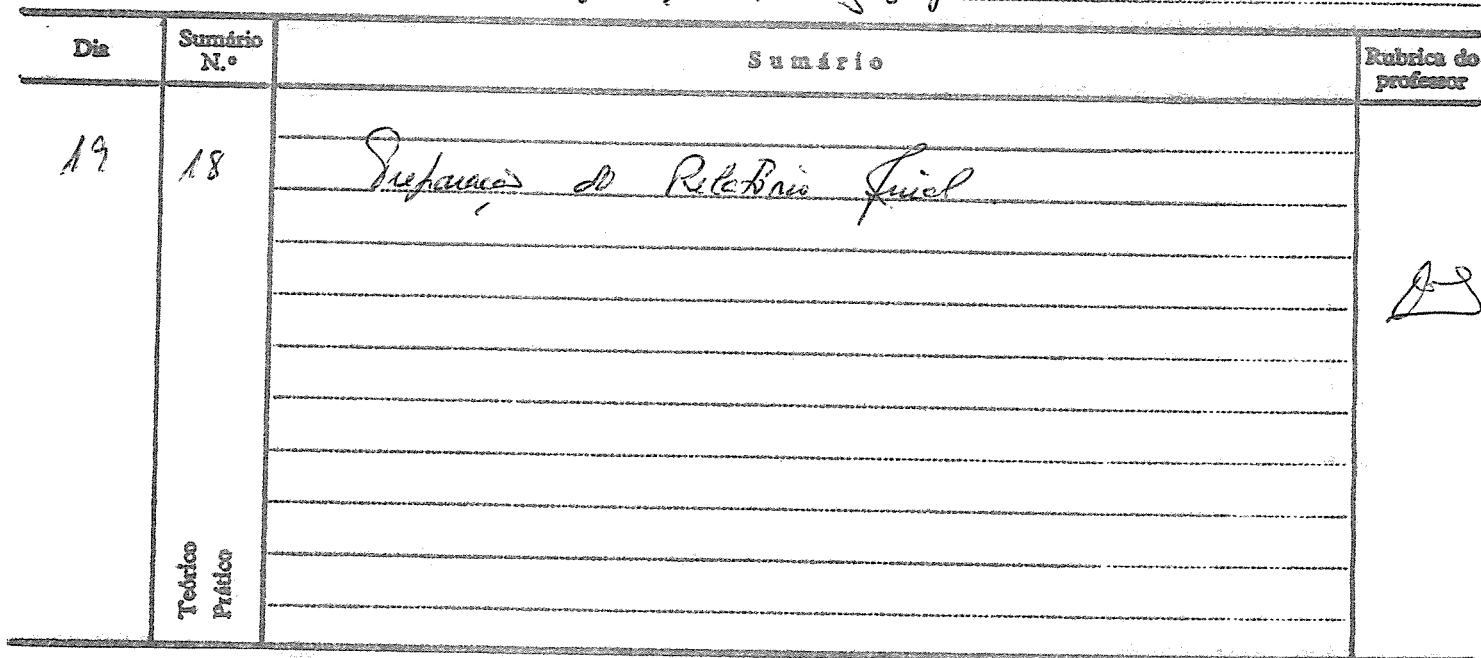 Dia
Sumário N.º
Sumário
Rubrica do professor
19
18
Preparação do Relatório Final
Teórico
Prático